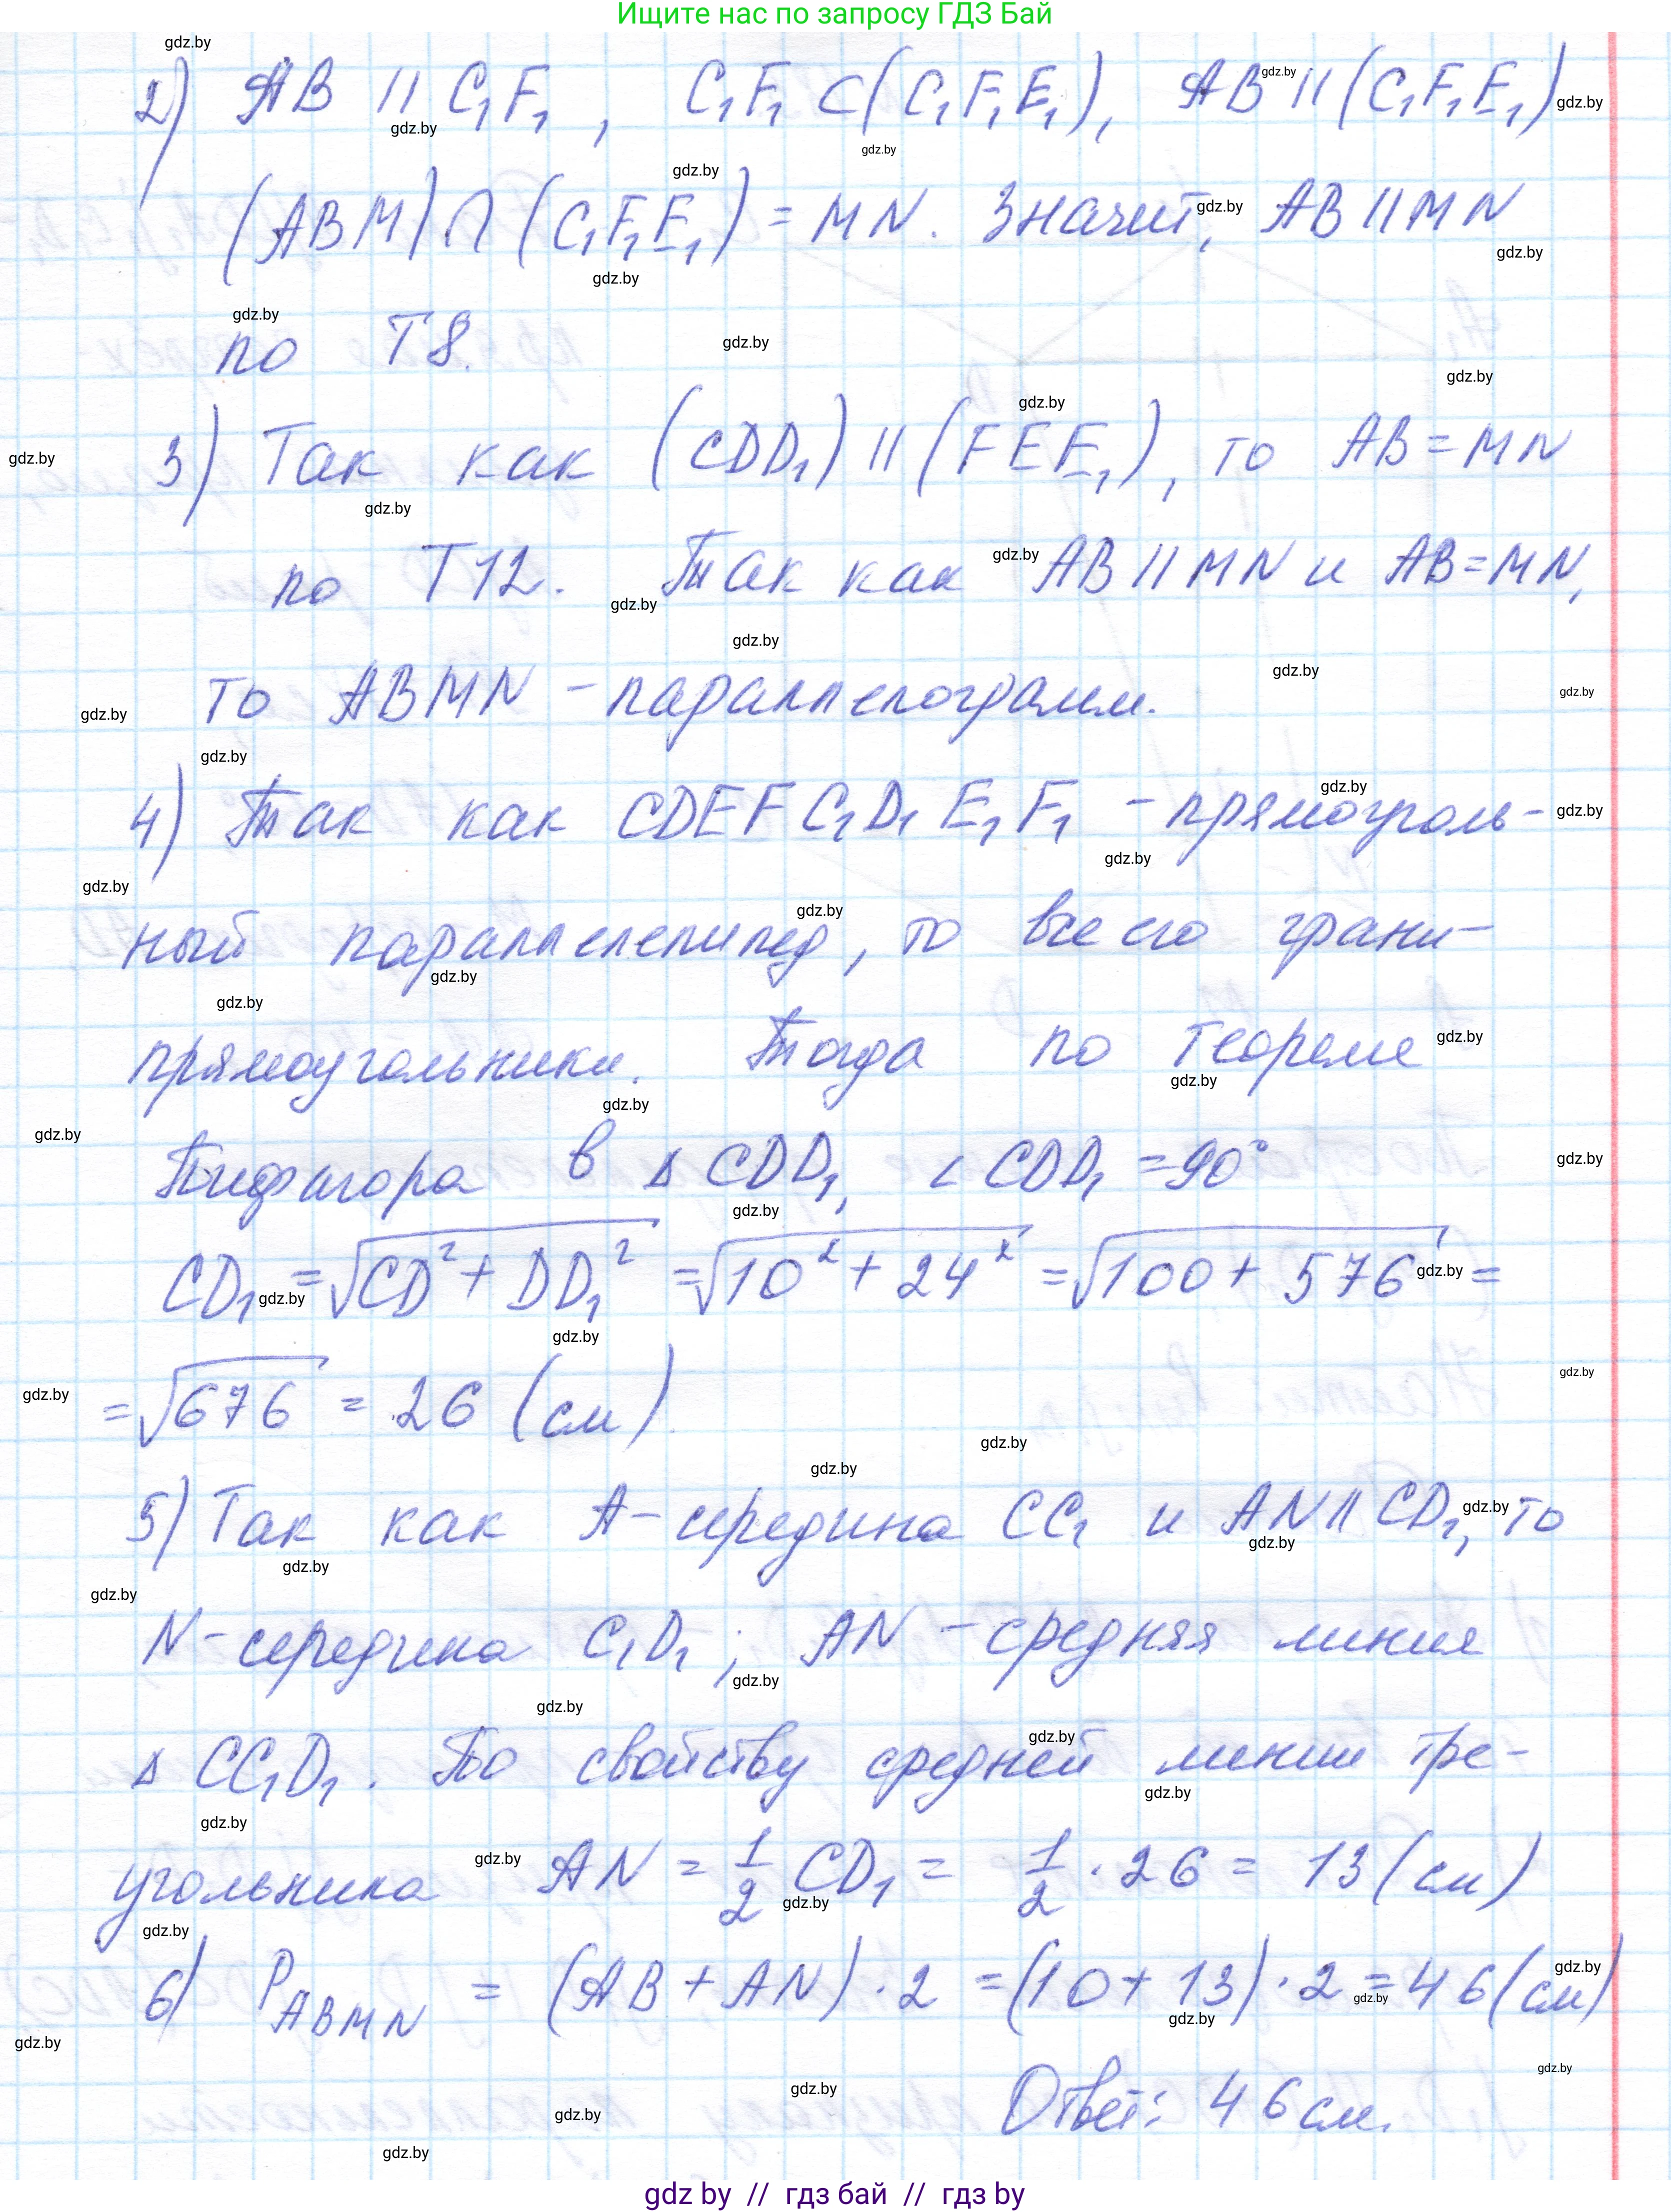 Ищите нас по запросу ГДЗ Бай
2) AB || C₁F₁, C₁F₁ ⊂ (C₁F₁E₁), AB || (C₁F₁E₁)
(ABM) ∩ (C₁F₁E₁) = MN. Значит, AB || MN
по Т8.
3) Так как (CDD₁) || (FEE₁), то AB = MN
по Т12. Так как AB || MN и AB = MN,
то ABMN - параллелограмм.
4) Так как CDEFC₁D₁E₁F₁ - прямоуголь-
ный параллелепипед, то все его грани-
прямоугольники. Тогда по теореме
Пифагора в Δ CDD₁, ∠ CDD₁ = 90°
CD₁ = √(CD² + DD₁²) = √(10² + 24²) = √(100 + 576) =
= √676 = 26 (см)
5) Так как A - середина CC₁ и AN || CD₁, то
N - середина C₁D₁; AN - средняя линия
Δ CC₁D₁. По свойству средней линии тре-
угольника AN = 1/2 CD₁ = 1/2 · 26 = 13 (см)
6) P_ABMN = (AB + AN) · 2 = (10 + 13) · 2 = 46 (см)
Ответ: 46 см.
gdz by // гдз бай // гдз by